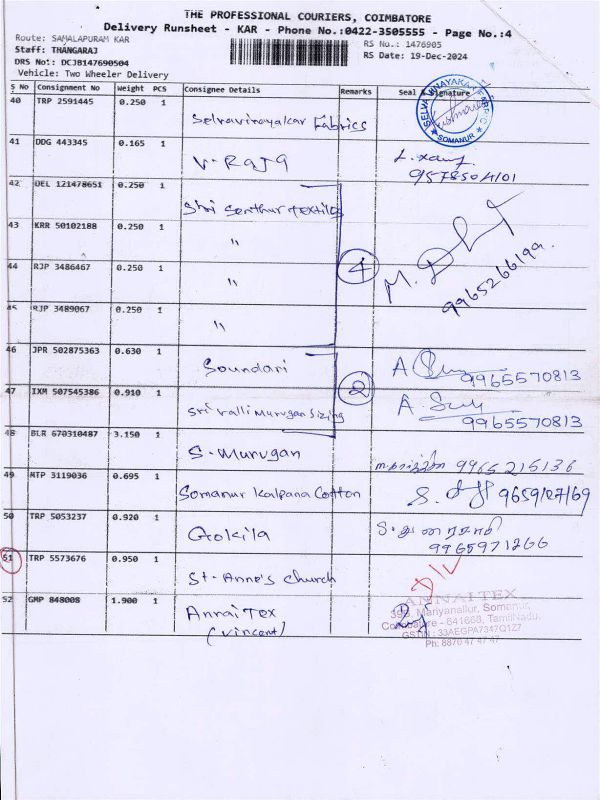 THE PROFESSIONAL COURIERS, COIMBATORE
Delivery Runsheet - KAR - Phone No.:0422-3505555 - Page No.:4
Route: SAMALAPURAM KAR
RS No.: 1476905
Staff: THANGARAJ
RS Date: 19-Dec-2024
DRS No!: DCJB147690504
Vehicle: Two Wheeler Delivery
S No Consignment No Weight PCS Consignee Details Remarks Seal & Signature
40 TRP 2591445 0.250 1 Selvavinayakar Fabrics
SELVA VINAYAKAR FABRIC
SOMANUR
41 DDG 443345 0.165 1 V. Raja
42 DEL 121478651 0.250 1 Shri Senthur Textiles
43 KRR 50102188 0.250 1 "
44 RJP 3486467 0.250 1 " 4
45 RJP 3489067 0.250 1 "
46 JPR 502875363 0.630 1 Soundari 9965570813
47 IXM 507545386 0.910 1 Sri Valli Murugan Sizing 2 9965570813
48 BLR 670310487 3.150 1 S. Murugan 9965215136
49 MTP 3119036 0.695 1 Somanur Kalpana Cotton 9659127169
50 TRP 5053237 0.920 1 Gokila
9965971266
51 TRP 5573676 0.950 1 St. Anne's Church D/L
52 GMP 848008 1.900 1 Annai Tex
(Vincent)
ANNAI TEX
Mariyanallur, Somanur,
Coimbatore - 641668, TamilNadu.
GSTIN : 33AEGPA7347Q1Z7
Ph: 8870 47 47 47